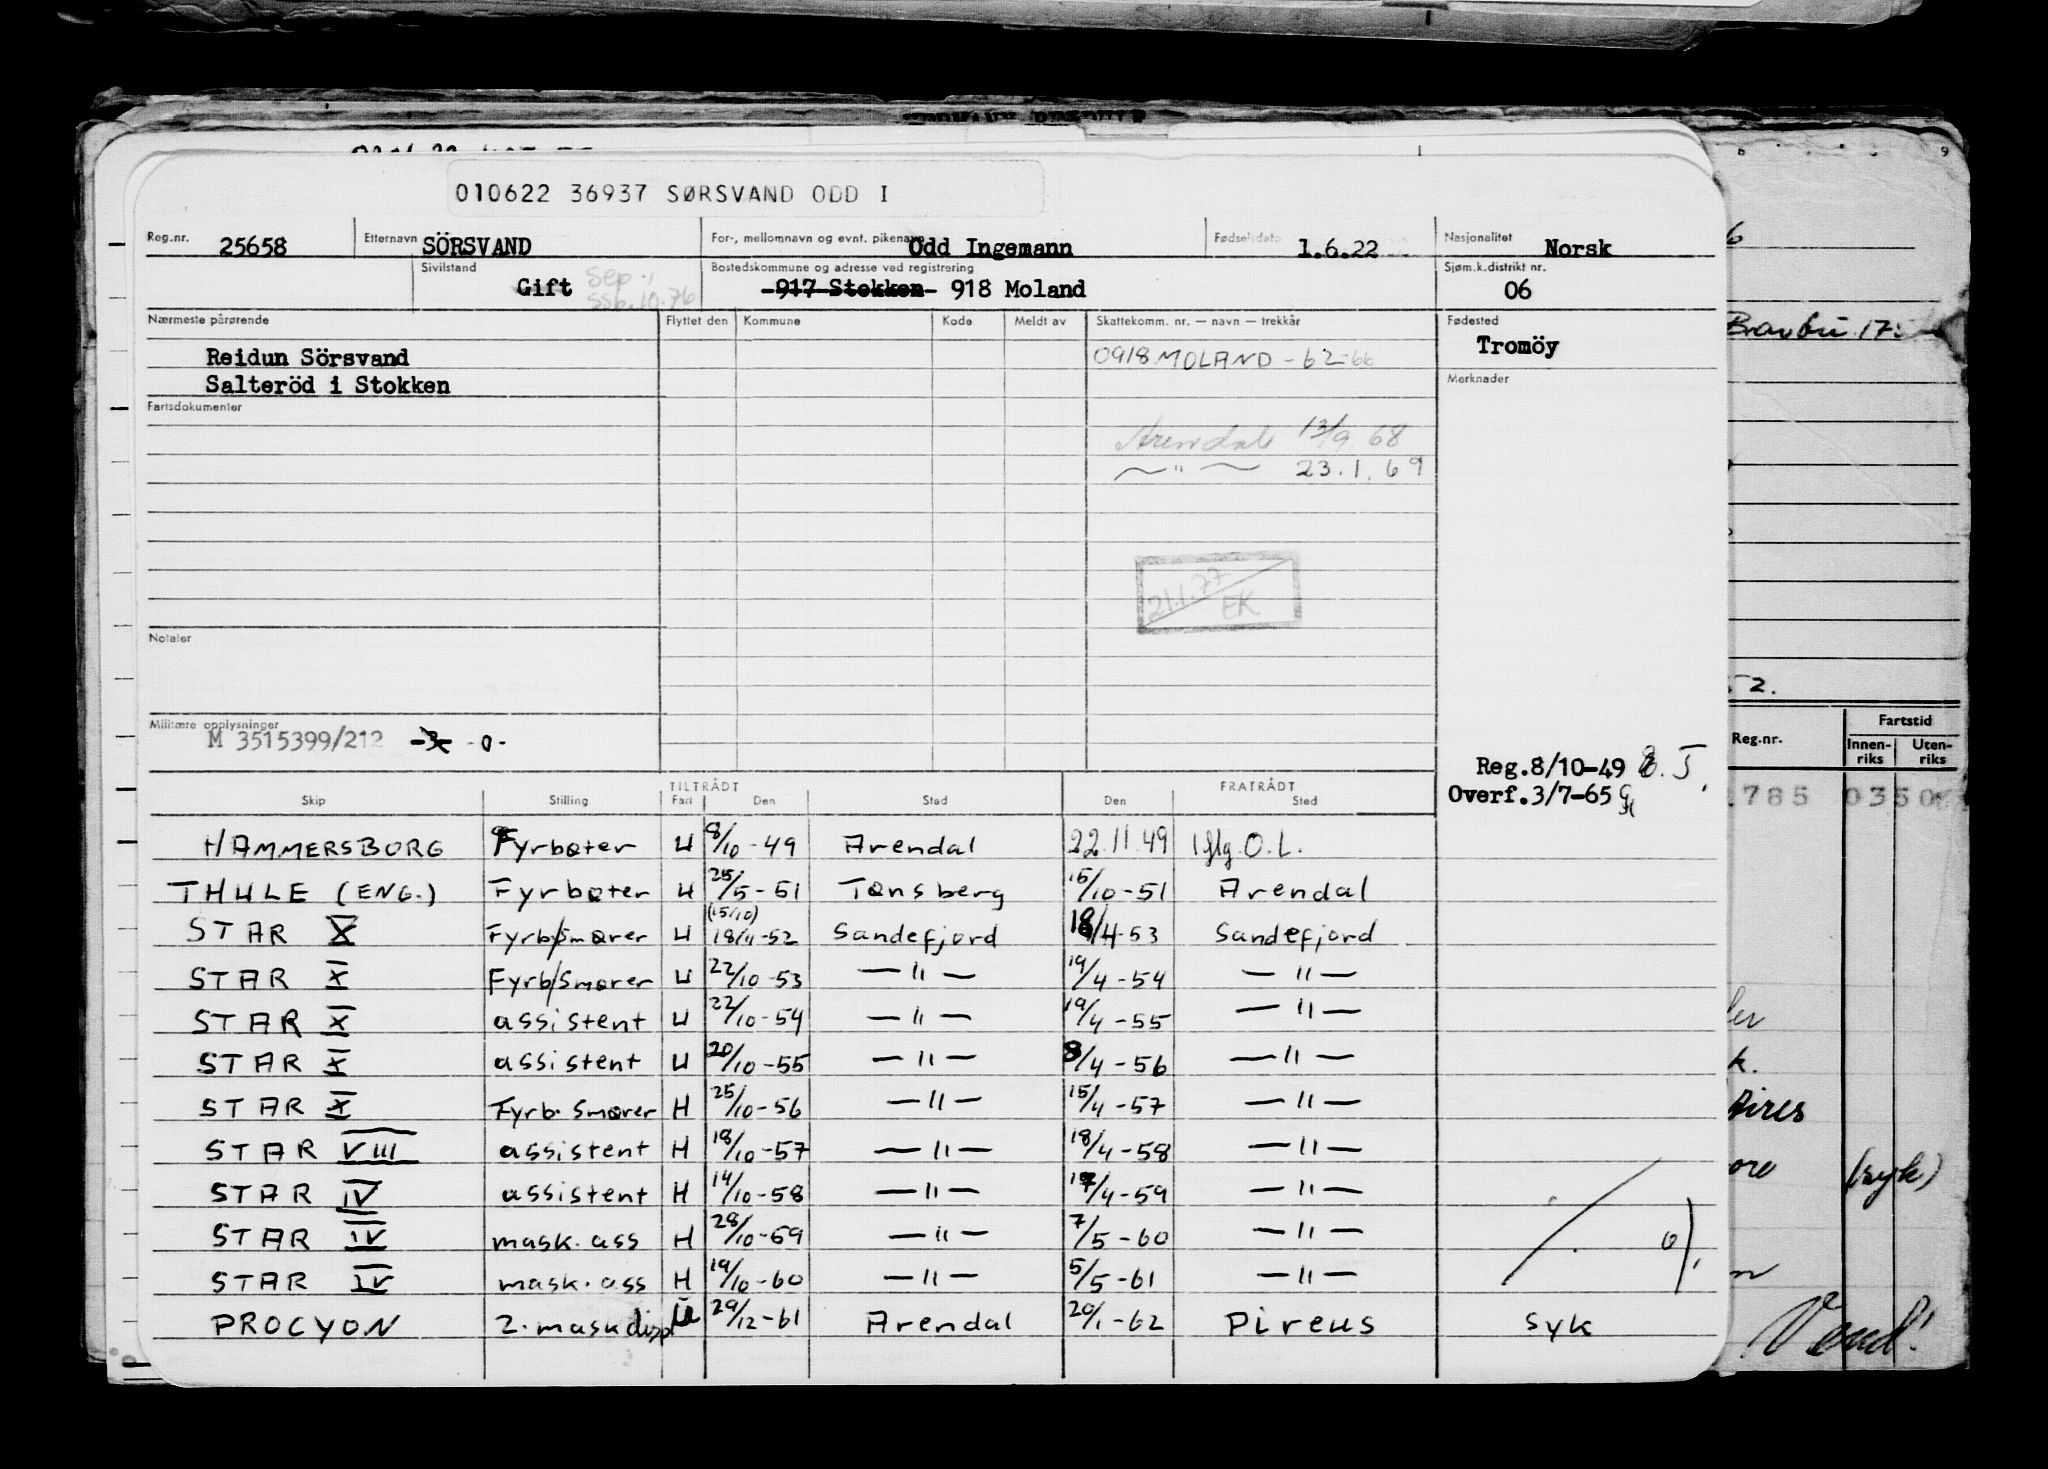 010622 36937 SØRSVAND ODD I
Reg.nr. 25658 Etternavn SÖRSVAND For-, mellomnavn og evnt. pikenavn Odd Ingemann Fødselsdato 1.6.22 Nasjonalitet Norsk
Sivilstand Gift Sep. Bostedskommune og adresse ved registrering -917 Stokken- 918 Moland Sjøm.k.distrikt nr. 06
Nærmeste pårørende Flyttet den Kommune Kode Meldt av Skattekomm. nr. — navn — trekkår Fødested
Reidun Sörsvand 0918 MOLAND - 62-66 Tromöy
Salteröd i Stokken Merknader
Fartsdokumenter
Arendal 13/9 68
— " — 23.1.69
21.1.77 EK
Notater
Militære opplysninger
M 3515399/212 -3- -0-
Reg.8/10-49
Overf.3/7-65
TILTRÅDT FRATRÅDT
Skip Stilling Fart Den Sted Den Sted
HAMMERSBORG Fyrbøter U 8/10-49 Arendal 22.11.49 iflg. O.L.
THULE (ENG.) Fyrbøter U 25/5-51 Tønsberg 15/10-51 Arendal
(15/10)
STAR X Fyrb/Smører U 18/4-52 Sandefjord 18/4-53 Sandefjord
STAR X Fyrb/Smører U 22/10-53 — " — 19/4-54 — " —
STAR X assistent U 22/10-54 — " — 19/4-55 — " —
STAR X assistent U 20/10-55 — " — 8/4-56 — " —
STAR X Fyrb. Smører H 25/10-56 — " — 15/4-57 — " —
STAR VIII assistent H 18/10-57 — " — 18/4-58 — " —
STAR IV assistent H 14/10-58 — " — 17/4-59 — " —
STAR IV mask. ass H 28/10-59 — " — 7/5-60 — " —
STAR IV mask. ass H 19/10-60 — " — 5/5-61 — " —
PROCYON 2. mask disp U 29/12-61 Arendal 20/1-62 Pireus Syk
9
6
Bravbu 17
52.
Reg.nr. Fartstid
Innenriks Utenriks
785 0350
k.
(syk)
Vend!